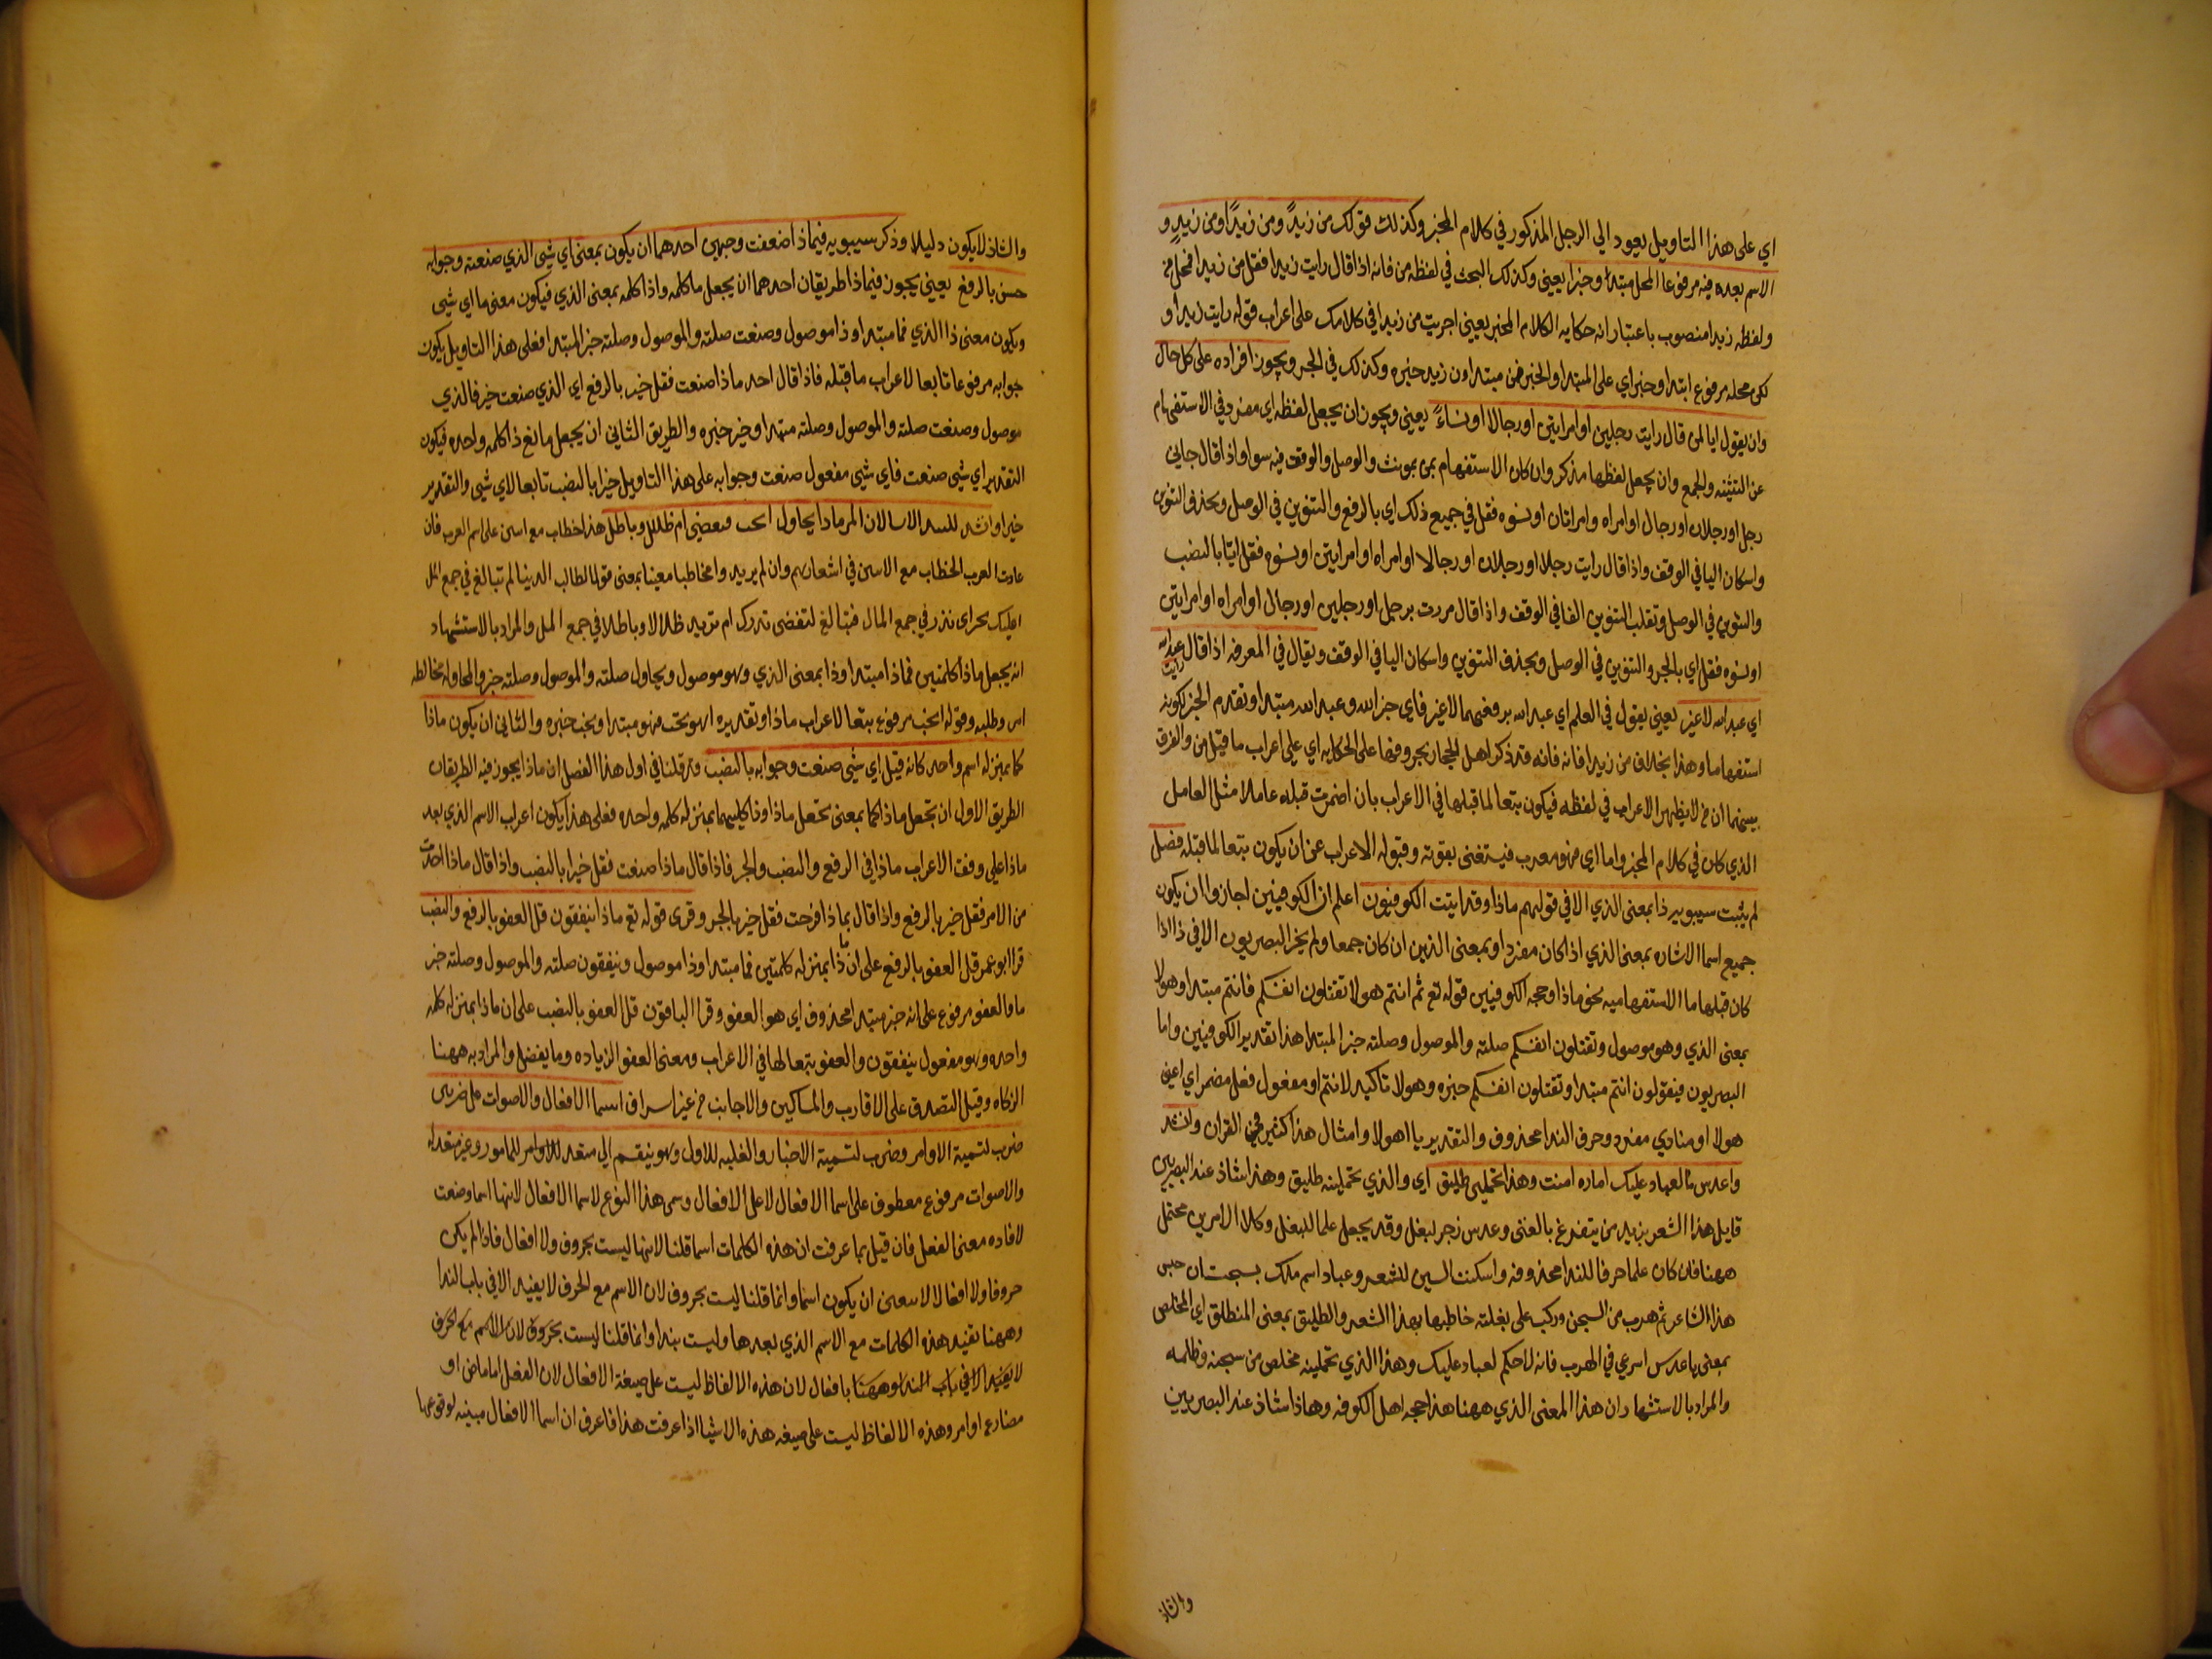 اي على هذا التاويل يعود الي الرجل المذكور في كلام المخبر وكذلك قولك من زيدٌ ومن زيدًا ومن زيدٍ و
الاسم بعده فيه مرفوعا المحل مبتدا وخبرا يعني وكذلك البحث في لفظه من فانه اذا قال رايت زيدا فقل من زيدا فمحل من
ولفظه زيدا منصوب باعتبار انه حكايه الكلام المخبر يعني اجريت من زيدا في كلامك على اعراب قوله رايت زيدا و
لكن محله مرفوع ابتدا وخبر اي على المبتدا والخبر فمن مبتدا ون زيد خبره وكذلك في الجر ويجوز افراده على كل حال
وان يقول ايا لمن قال رايت رجلين او امراتين او رجالا او نساءً يعني ويجوز ان يجعل لفظه اي مفرد في الاستفهام
عن التثنيه والجمع وان يجعل لفظها مذكر وان كان الاستفهام بمن بمونث والوصل والوقف فيه سوا واذا قال جاني
رجل او رجلان او رجال او امراه وامراتان او نسوه فقل في جميع ذلك اي بالرفع والتنوين في الوصل وبحذف التنوين
واسكان اليا في الوقف واذا قال رايت رجلا او رجلان او رجالا او امراه او امراتين او نسوه فقل ايا بالنصب
والتنوين في الوصل وتقلب التنوين الفا في الوقف واذا قال مررت برجل او رجلين او رجال او امراه او امراتين
او نسوه فقل اي بالجر والتنوين في الوصل وبحذف التنوين واسكان اليا في الوقف ويقال في المعرفه اذا قال رايت عبد الله
اي عبد الله لا غير يعني يقول في العلم اي عبد الله برفعهما لا غير فاي خبر الله وعبد الله مبتدا وتقدم الخبر لكونه
استفهاما وهذا بخلاف من زيدا فانه فانه قد ذكر اهل الحجاز بجر وفها على الحكايه اي على اعراب ما قبل من والفرق
بينهما ان من لا يظهر الاعراب في لفظه فيكون تبعا لما قبلها في الاعراب بان اضمرت قبله عاملا مثل العامل
الذي كان في كلام المخبر واما اي فهو معرب فيستغني بقوته وقبوله الاعراب عن ان يكون تبعا لما قبله فصل
لم يثبت سيبويه ذا بمعنى الذي الا في قولهم ماذا وقد اثبت الكوفيون اعلم ان الكوفيين اجازوا ان يكون
جميع اسما الاشاره بمعنى الذي اذا كان مفردا وبمعنى الذين ان كان جمعا ولم يجز البصريون الا في ذا اذا
كان قبلها ما الاستفهاميه نحو ماذا وحجه الكوفيين قوله تع ثم انتم هولا تقتلون انفسكم فانتم مبتدا وهولا
بمعنى الذي وهو موصول وتقتلون انفسكم صلته والموصول وصلته خبر المبتدا هذا تقدير الكوفيين واما
البصريون فيقولون انتم مبتدا وتقتلون انفسكم خبره وهولا تاكيد لانتم او مفعول فعل مضمر اي اعني
هولا او منادي مفرد وحرف الندا محذوف والتقدير يا اهولا وامثال هذا كثير في القران وانشد
واعدس مالعباد عليك اماره امنت وهذا تحملين طليق اي والذي تحملينه طليق وهذا شاذ عند البصريين
قايل هذا الشعر يزيد بن مفرغ بالغين وعدس زجر لبغل وقد يجعل علما للبغل وكلا الامرين محتمل
ههنا فان كان علما حرفا للندا محذوفه واسكنت السين للشعر وعباد اسم ملك بسجستان حبس
هذا الشاعر ثم هرب من السجن وركب على بغلته خاطبها بهذا الشعر والطليق بمعنى المنطلق اي المخلص
بمعنى يا عدس اسرعي في الهرب فانه لا حكم لعباد عليك وهذا الذي تحملينه مخلص من سجنه وظلمه
والمراد بالاستشهاد ان هذا المعنى الذي ههنا هذا حجه اهل الكوفه وهاذا شاذ عند البصريين
والشاذ
والشاذ لا يكون دليلا وذكر سيبويه في ماذا صنعت وجهين احدهما ان يكون بمعنى اي شي الذي صنعته وجوابه
حسن بالرفع يعني يجوز في ماذا طريقان احدهما ان يجعل ما كلمه واذا كلمه بمعنى الذي فيكون معنى ما اي شي
ويكون معنى ذا الذي فما مبتدا وذا موصول وصنعت صلته والموصول وصلته خبر المبتدا فعلى هذا التاويل يكون
جوابه مرفوعا تابعا لاعراب ما قبله فاذا قال احد ماذا صنعت فقل خير بالرفع اي الذي صنعت خير فالذي
موصول وصنعت صلته والموصول وصلته مبتدا وخير خبره والطريق الثاني ان يجعل ما مع ذا كلمه واحده فيكون
التقدير اي شي صنعت فاي شي مفعول صنعت وجوابه على هذا التاويل خيرا بالنصب تابعا لاي شي والتقدير
خيرا وانشد الا تسالان المر ماذا يحاول انحب فيقضى ام ظلال وباطل هذا خطاب مع اسين على اسم العرب فان
عادت العرب الخطاب مع الاسين في اشعارهم وان لم يريدوا مخاطبا معينا بمعنى قولا لطالب الدنيا لم تبالغ في جمع المال
اعليك نحر اي نذر في جمع المال فتبالغ لتقضى نذرك ام تريد ظلالا وباطلا في جمع المال والمراد بالاستشهاد
انه يجعل ماذا كلمتين فماذا مبتدا وذا بمعنى الذي وهو موصول ويحاول صلته والموصول وصلته خبر والمحاوله مخالطه
امر وطلبه وقوله انحب مرفوع تبعا لاعراب ماذا وتقديره اهو نحب فهو مبتدا ونحب خبره والثاني ان يكون ماذا
كما بمنزله اسم واحد كانه قيل اي شي صنعت وجوابه بالنصب وقد قلنا في اول هذا الفصل ان ماذا يجوز فيه الطريقان
الطريق الاول ان تجعل ماذا كما بمعنى تجعل ماذا وذا كليهما بمنزله كلمه واحده فعلى هذا يكون اعراب الاسم الذي بعد
ماذا على وفق الاعراب ماذا في الرفع والنصب والجر فاذا قال ماذا صنعت فقل خيرا بالنصب واذا قال ماذا احدث
من الامر فقل خير بالرفع واذا قال بماذا فرحت فقل خير بالجر وقرى قوله تع ماذا ينفقون قل العفو بالرفع والنصب
قرا ابو عمر قل العفو بالرفع على ان ما ذا بمنزله كلمتين فما مبتدا وذا موصول وينفقون صلته والموصول وصلته خبر
ما والعفو مرفوع على انه خبر مبتدا محذوف اي هو العفو وقرا الباقون قل العفو بالنصب على ان ماذا بمنزله كلمه
واحده وهو مفعول ينفقون والعفو تبعا لها في الاعراب ومعنى العفو الزياده وما يفضل والمراد به ههنا
الزكاه وقيل التصدق على الاقارب والمساكين والاجانب من غير اسراف اسما الافعال والاصوات على ضربين
ضرب لتسمية الاوامر وضرب لتسمية الاخبار والغلبه للاول وهو ينقسم الي متعد للمامور وغير متعد له
والاصوات مرفوع معطوف على اسما الافعال لا على الافعال وسمى هذا النوع لاسما الافعال لانها اسما وضعت
لافاده معنى الفعل فان قيل بما عرفت ان هذه الكلمات اسما قلنا لانها ليست بحروف ولا افعال فاذا لم يكن
حروفا ولا افعالا تعين ان يكون اسما وانما قلنا ليست بحروف لان الاسم مع الحرف لا يفيد الا في باب الندا
وههنا تفيد هذه الكلمات مع الاسم الذي بعدها وليست بندا وانما قلنا ليست بحروف لان الاسم مع الحرف
لا يفيد الا في باب الندا وههنا بافعال لان هذه الالفاظ ليست على صيغة الافعال لان الفعل اما ماض او
مضارع او امر وهذه الالفاظ ليست على صيغه هذه الاشيا اذا عرفت هذا فاعرف ان اسما الافعال مبنيه لوقوعها